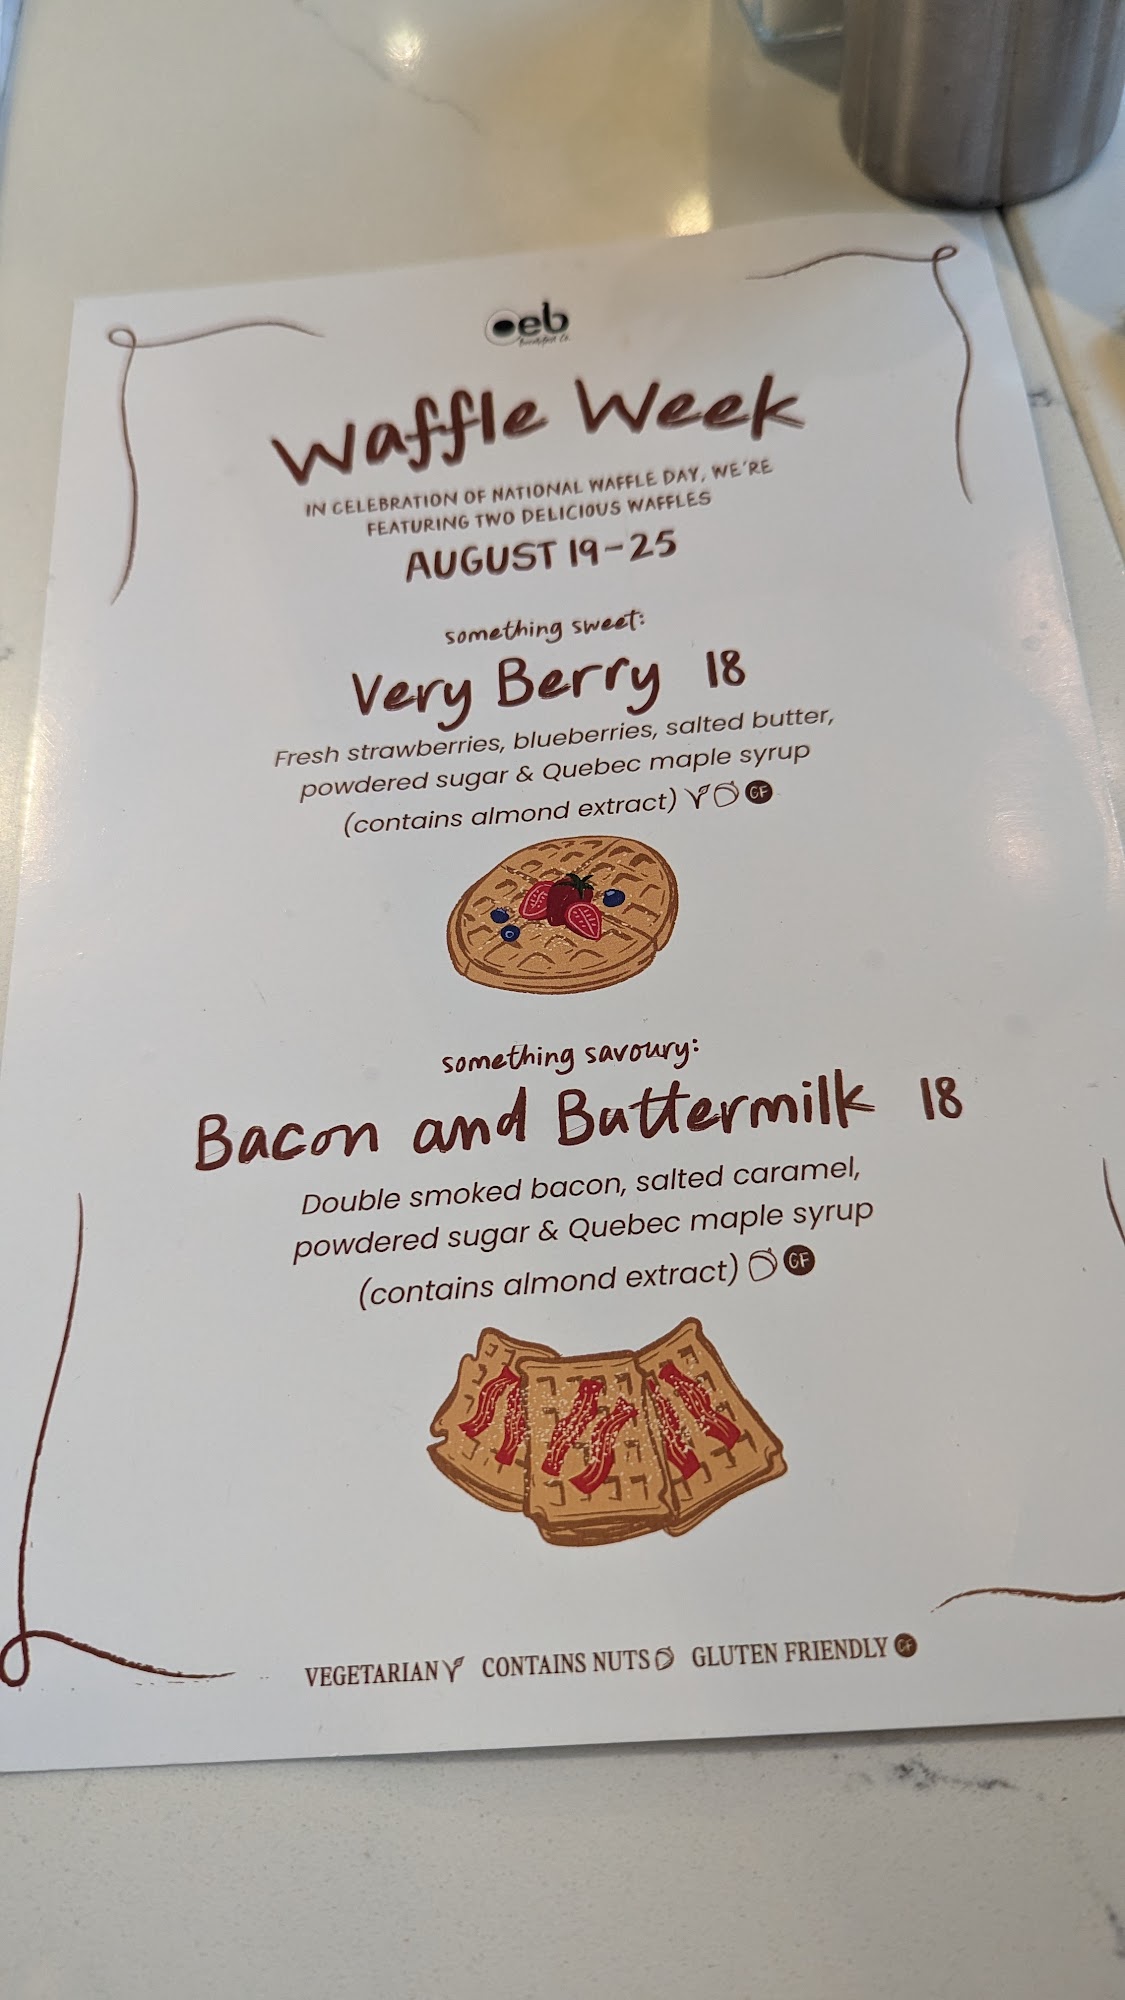 oeb
Breakfast Co.
Waffle Week
IN CELEBRATION OF NATIONAL WAFFLE DAY, WE'RE
FEATURING TWO DELICIOUS WAFFLES
AUGUST 19-25
something sweet:
Very Berry 18
Fresh strawberries, blueberries, salted butter,
powdered sugar & Quebec maple syrup
(contains almond extract) GF
something savoury:
Bacon and Buttermilk 18
Double smoked bacon, salted caramel,
powdered sugar & Quebec maple syrup
(contains almond extract) GF
VEGETARIAN CONTAINS NUTS GLUTEN FRIENDLY GF